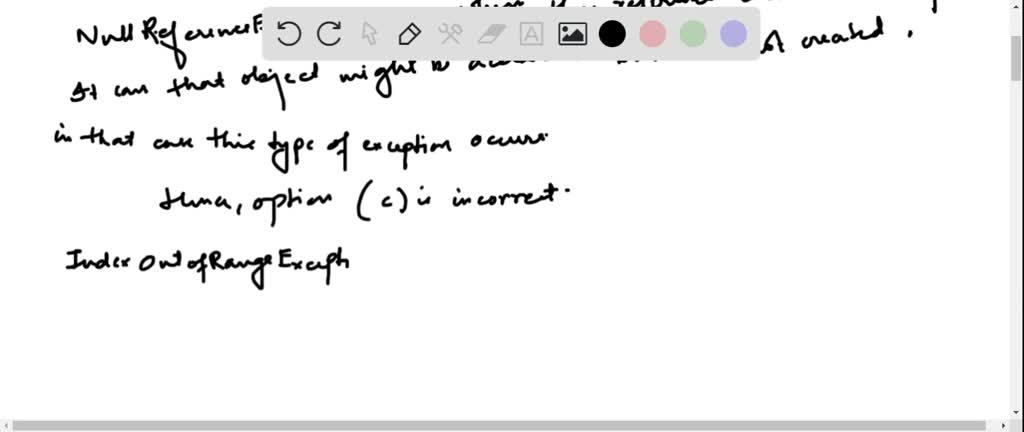 NullReferenceE
It can that object might be created.
in that case this type of exception occurs.
Hence, option (c) is incorrect.
Index Out of Range Exceph
A